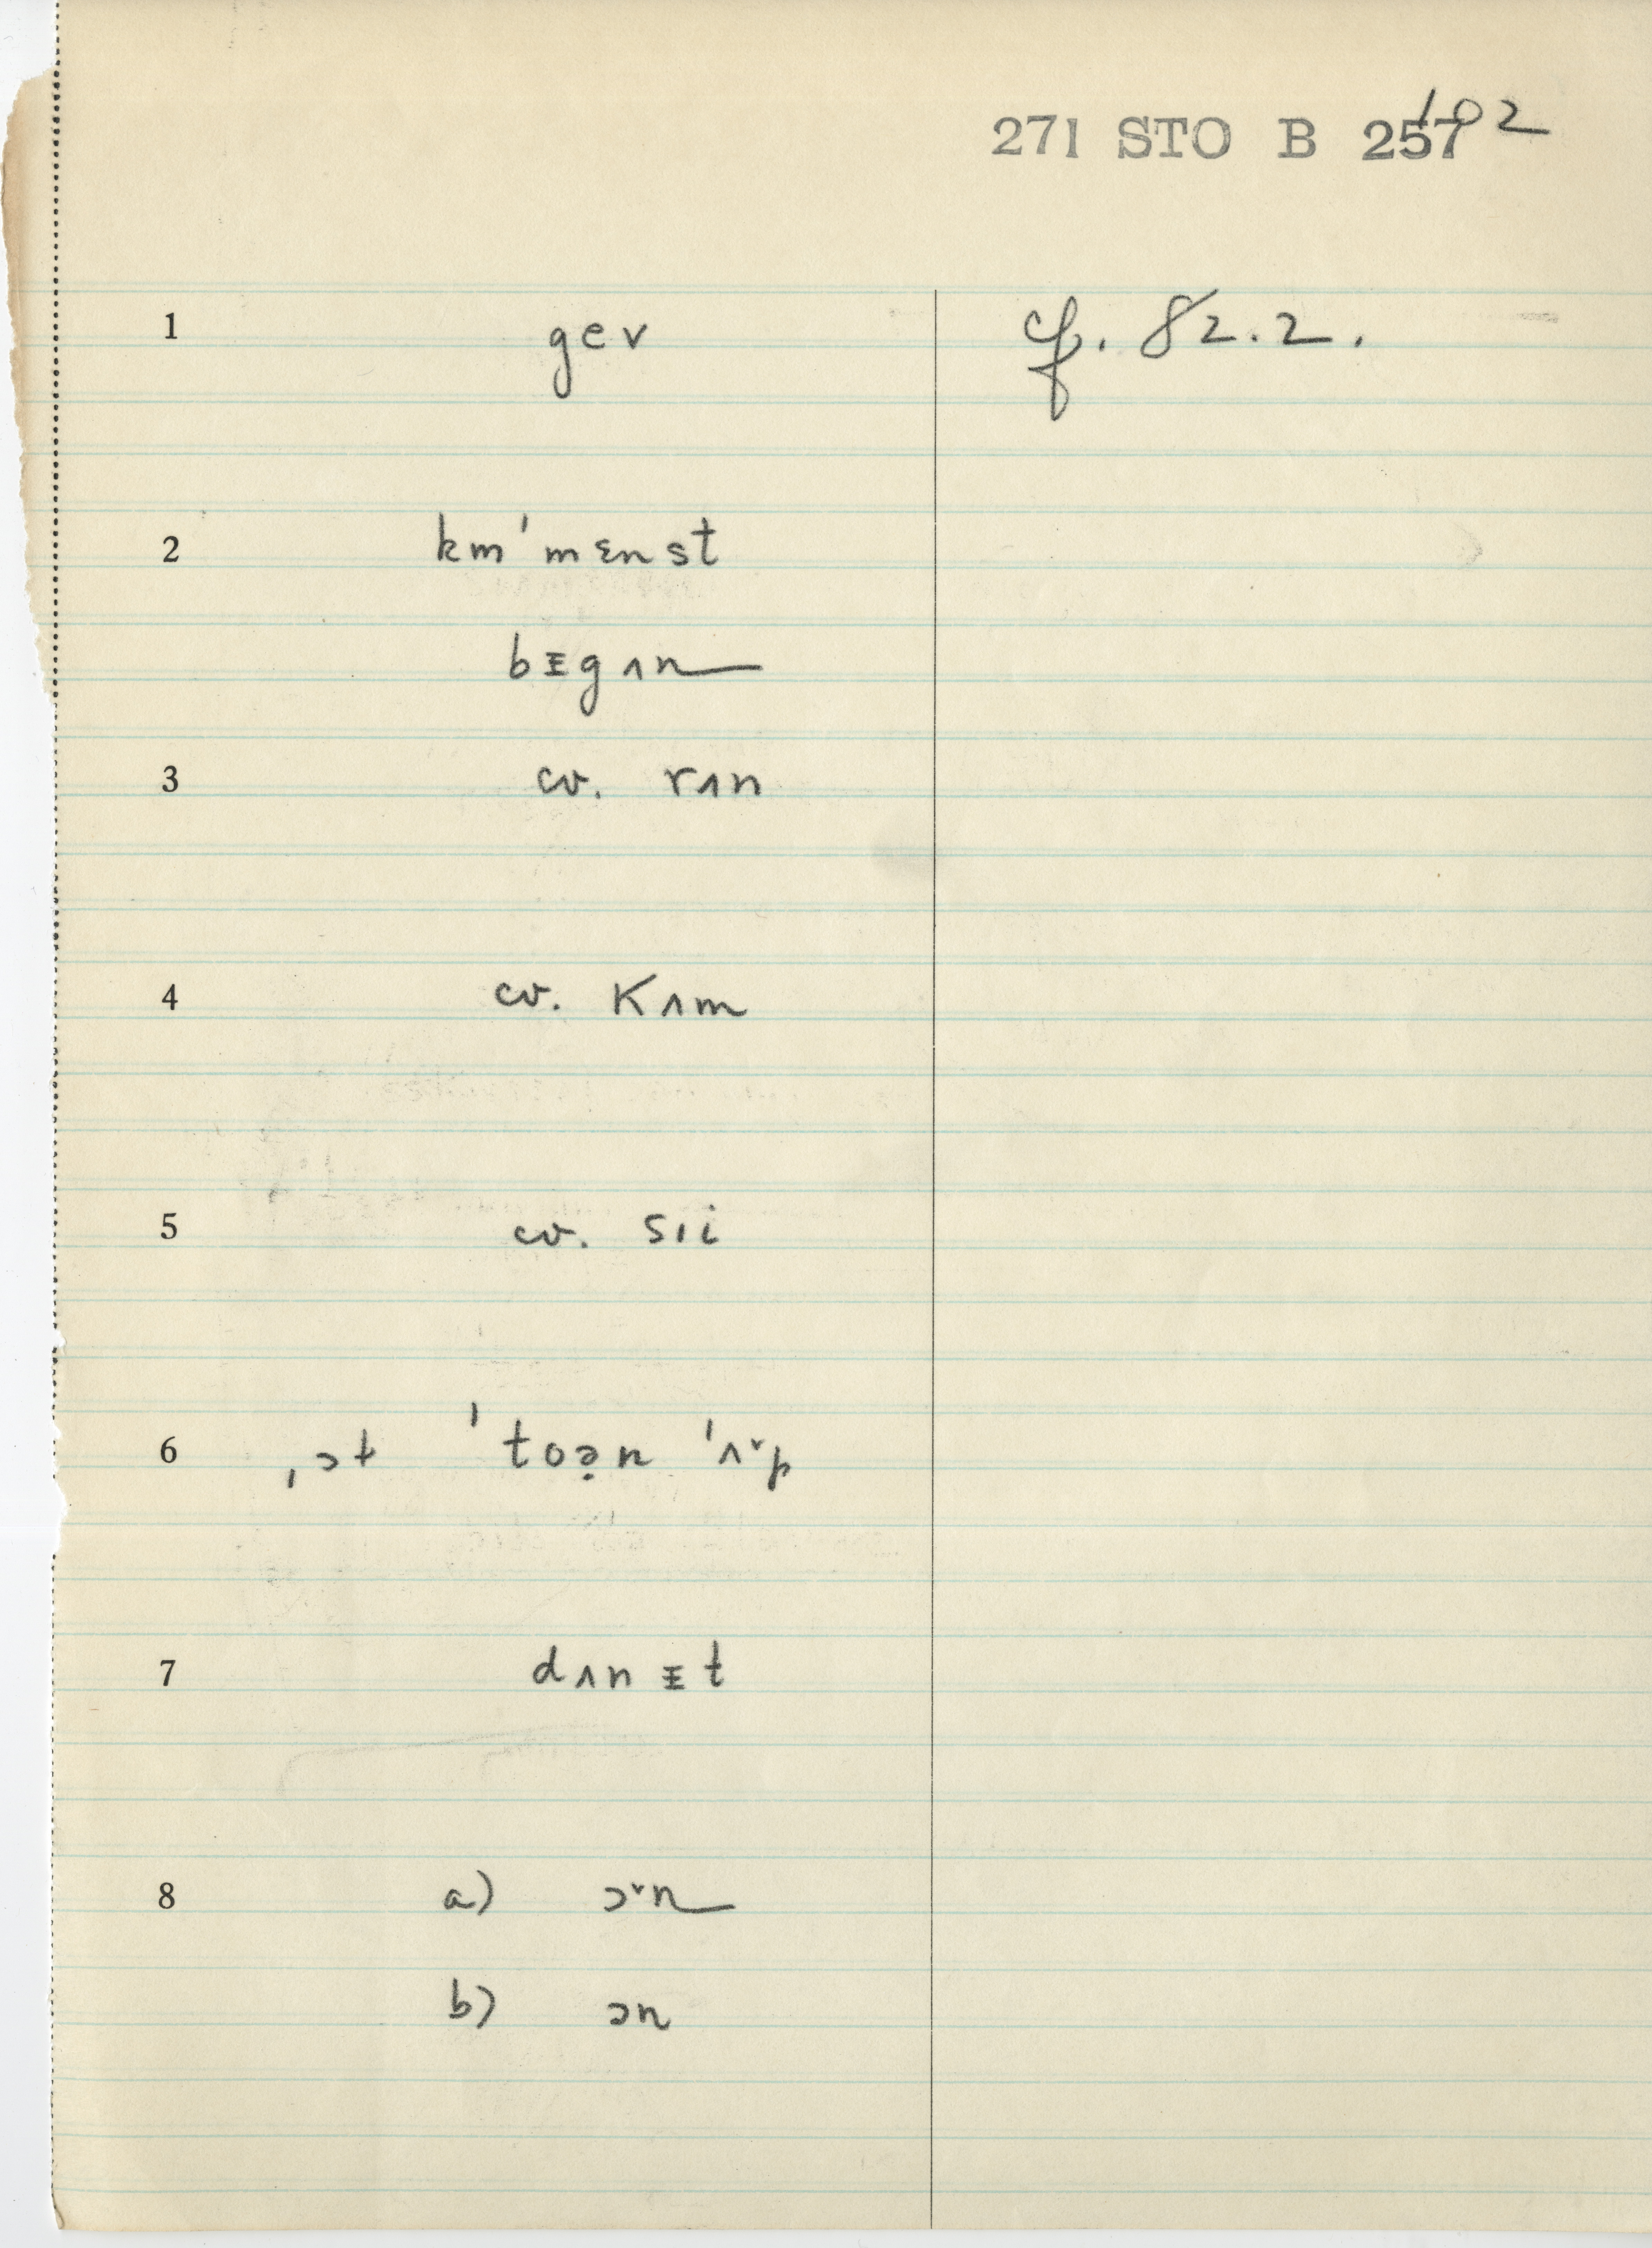 271 STO B 257 102
1 gev cf. 82.2.
2 km'mɛnst
bᵻgʌn
3 cv. rʌn
4 cv. Kʌm
5 cv. sıi
6 ˌɔt ˈtoə̣n ˈʌ˅p
7 dʌnᵻt
8 a) ɔ˅n
b) ɔn